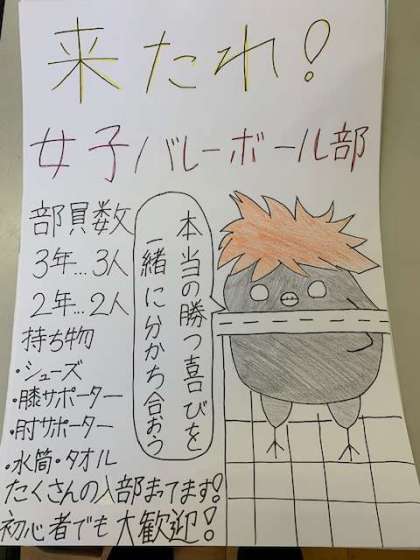 来たれ!
女子バレーボール部
部員数
3年…3人
2年…2人
持ち物
・シューズ
・膝サポーター
・肘サポーター
・水筒・タオル
本当の勝つ喜びを
一緒に分かち合おう
たくさんの入部まってます!
初心者でも大歓迎!